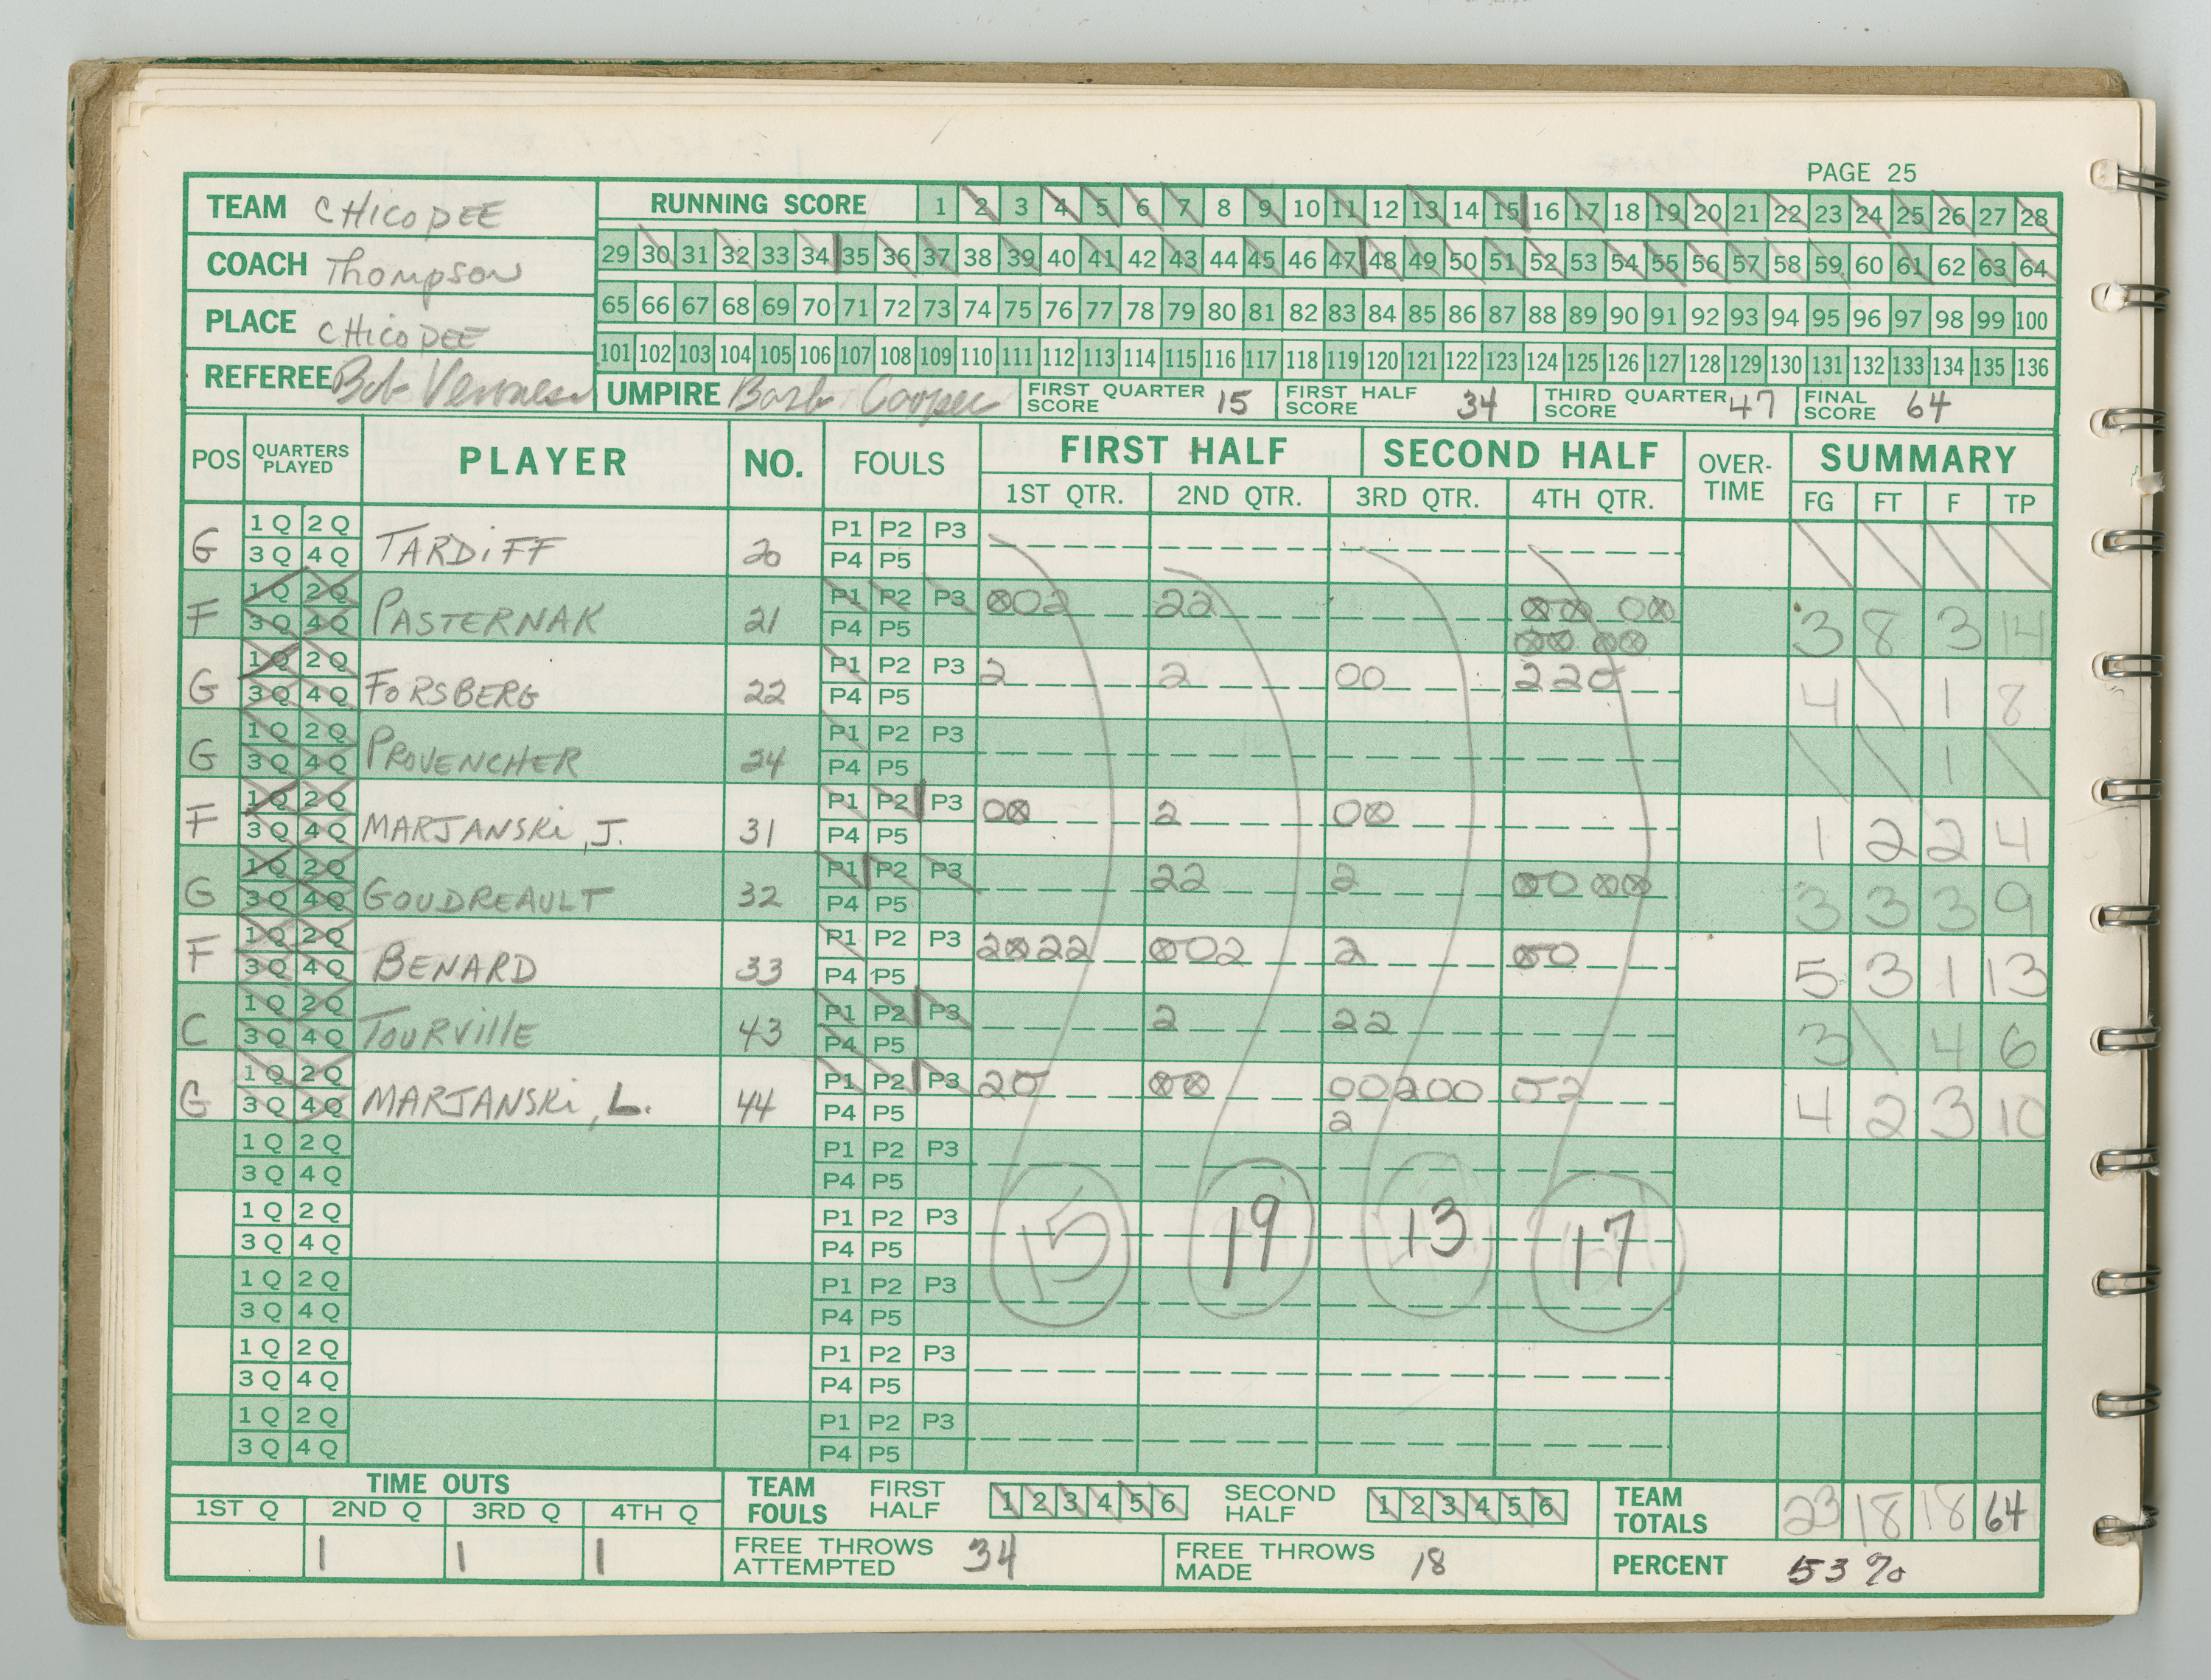 PAGE 25
TEAM CHICOPEE
RUNNING SCORE 1 2 3 4 5 6 7 8 9 10 11 12 13 14 15 16 17 18 19 20 21 22 23 24 25 26 27 28
COACH Thompson
29 30 31 32 33 34 35 36 37 38 39 40 41 42 43 44 45 46 47 48 49 50 51 52 53 54 55 56 57 58 59 60 61 62 63 64
PLACE CHICOPEE
65 66 67 68 69 70 71 72 73 74 75 76 77 78 79 80 81 82 83 84 85 86 87 88 89 90 91 92 93 94 95 96 97 98 99 100
101 102 103 104 105 106 107 108 109 110 111 112 113 114 115 116 117 118 119 120 121 122 123 124 125 126 127 128 129 130 131 132 133 134 135 136
REFEREE Bob
UMPIRE Barb Cooper
FIRST QUARTER SCORE 15
FIRST HALF SCORE 34
THIRD QUARTER SCORE 47
FINAL SCORE 64
POS QUARTERS PLAYED PLAYER NO. FOULS FIRST HALF SECOND HALF OVER-TIME SUMMARY
1ST QTR. 2ND QTR. 3RD QTR. 4TH QTR. FG FT F TP
G 1Q 2Q 3Q 4Q TARDIFF 20 P1 P2 P3 P4 P5
F 1Q 2Q 3Q 4Q PASTERNAK 21 P1 P2 P3 P4 P5 ⊗02 22 ⊗⊗ 0⊗ ⊗⊗ ⊗⊗ 3 8 3 14
G 1Q 2Q 3Q 4Q FORSBERG 22 P1 P2 P3 P4 P5 2 2 00 220 4 \ 1 8
G 1Q 2Q 3Q 4Q PROVENCHER 24 P1 P2 P3 P4 P5 \ \ 1 \
F 1Q 2Q 3Q 4Q MARJANSKI, J. 31 P1 P2 P3 P4 P5 0⊗ 2 0⊗ 1 2 2 4
G 1Q 2Q 3Q 4Q GOUDREAULT 32 P1 P2 P3 P4 P5 22 2 ⊗0 ⊗⊗ 3 3 3 9
F 1Q 2Q 3Q 4Q BENARD 33 P1 P2 P3 P4 P5 2⊗22 ⊗002 2 ⊗0 5 3 1 13
C 1Q 2Q 3Q 4Q TOURVILLE 43 P1 P2 P3 P4 P5 2 22 3 \ 4 6
G 1Q 2Q 3Q 4Q MARJANSKI, L. 44 P1 P2 P3 P4 P5 20 ⊗⊗ 002002 02 4 2 3 10
1Q 2Q 3Q 4Q P1 P2 P3 P4 P5
1Q 2Q 3Q 4Q P1 P2 P3 P4 P5 15 19 13 17
1Q 2Q 3Q 4Q P1 P2 P3 P4 P5
1Q 2Q 3Q 4Q P1 P2 P3 P4 P5
1Q 2Q 3Q 4Q P1 P2 P3 P4 P5
TIME OUTS
1ST Q 2ND Q 3RD Q 4TH Q
1 1 1
TEAM FOULS FIRST HALF 1 2 3 4 5 6 SECOND HALF 1 2 3 4 5 6
TEAM TOTALS 23 18 18 64
FREE THROWS ATTEMPTED 34
FREE THROWS MADE 18
PERCENT 53%